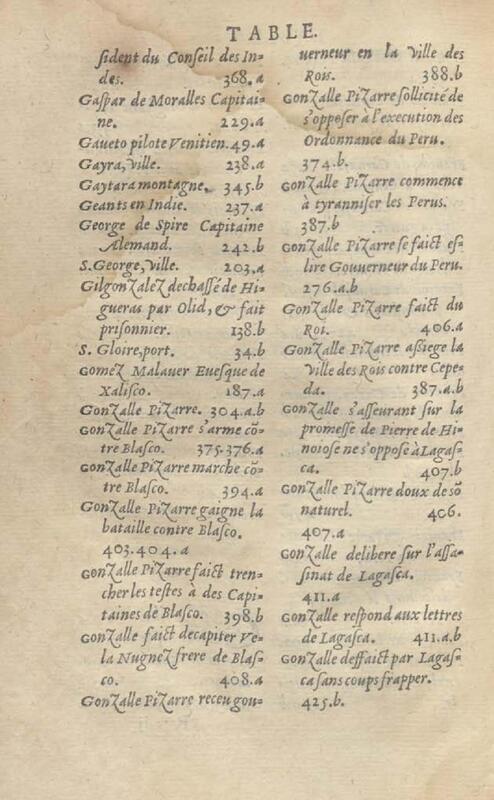 TABLE.
sident du Conseil des In-
des. 368.a
Gaspar de Moralles Capitai-
ne. 229.a
Gaueto pilote Venitien. 49.a
Gayra, ville. 238.a
Gaytara montagne. 345.b
Geants en Indie. 237.a
George de Spire Capitaine
Alemand. 242.b
S. George, ville. 203.a
Gilgonzalez dechassé de Hi-
gueras par Olid, & fait
prisonnier. 138.b
S. Gloire, port. 34.b
Gomez Malauer Euesque de
Xalisco. 187.a
Gonzalle Pizarre. 304.a.b
Gonzalle Pizarre s'arme cō-
tre Blasco. 375.376.a
Gonzalle Pizarre marche cō-
tre Blasco. 394.a
Gonzalle Pizarre gaigne la
bataille contre Blasco.
403.404.a
Gonzalle Pizarre faict tren-
cher les testes à des Capi-
taines de Blasco. 398.b
Gonzalle faict decapiter Ve-
la Nugnez frere de Blas-
co. 408.a
Gonzalle Pizarre receu gou-
uerneur en la ville des
Rois. 388.b
Gonzalle Pizarre sollicité de
s'opposer à l'execution des
Ordonnance du Peru.
374.b.
Gonzalle Pizarre commence
à tyranniser les Perus.
387.b
Gonzalle Pizarre se faict es-
lire Gouuerneur du Peru.
276.a.b
Gonzalle Pizarre faict du
Roi. 406.a
Gonzalle Pizarre assiege la
ville des Rois contre Cepe-
da. 387.a.b
Gonzalle s'asseurant sur la
promesse de Pierre de Hi-
noiose ne s'opposè à Lagas-
ca. 407.b
Gonzalle Pizarre doux de sō
naturel. 406.
407.a
Gonzalle delibere sur l'assa-
sinat de Lagasca.
411.a
Gonzalle respond aux lettres
de Lagasca. 411.a.b
Gonzalle deffaict par Lagas-
ca sans coups frapper.
425.b.